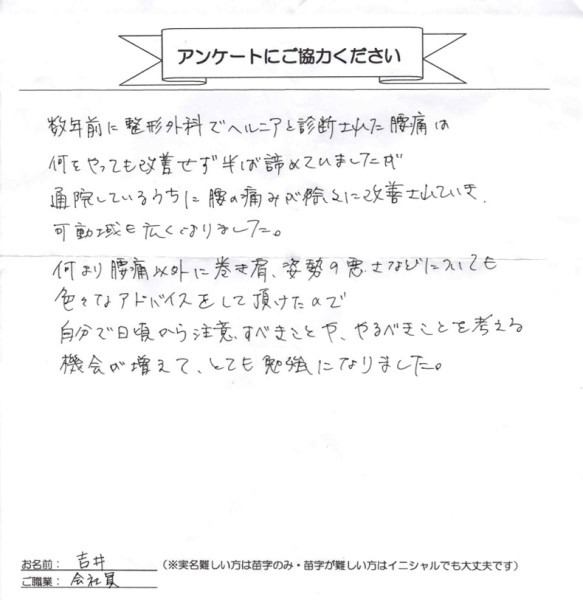 アンケートにご協力ください
数年前に整形外科でヘルニアと診断された腰痛は
何をやっても改善せず半ば諦めていましたが
通院しているうちに腰の痛みが徐々に改善されていき、
可動域も広くなりました。
何より腰痛以外に巻き肩、姿勢の悪さなどについても
色々なアドバイスをして頂けたので
自分で日頃から注意すべきことや、やるべきことを考える
機会が増えて、とても勉強になりました。
お名前： 吉井 (※実名難しい方は苗字のみ・苗字が難しい方はイニシャルでも大丈夫です)
ご職業： 会社員